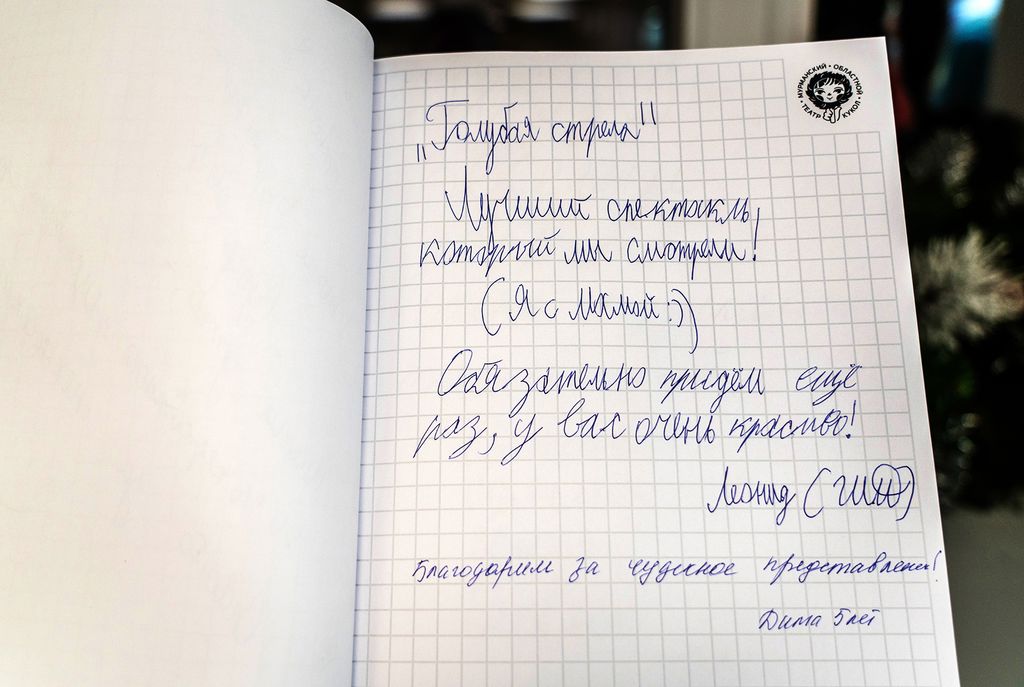 МУРМАНСКИЙ • ОБЛАСТНОЙ • ТЕАТР КУКОЛ •
„Голубая стрела"
Лучший спектакль,
который мы смотрели!
(Я с Мамой :))
Обязательно придём ещё
раз, у вас очень красиво!
Леонид
Благодарим за чудесное представление!
Дима 5 лет